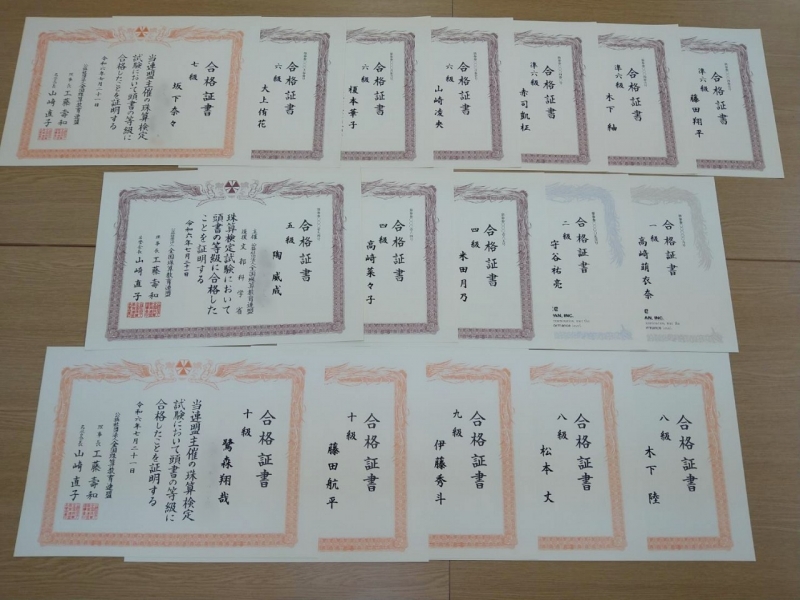 合格証書
準六級
藤田翔平
合格証書
準六級
木下 紬
合格証書
準六級
赤司凱柾
合格証書
六級
山崎凌央
合格証書
六級
榎本華子
合格証書
六級
大上侑花
合格証書
七級
坂下奈々
当連盟主催の珠算検定
試験において頭書の等級に
合格したことを証明する
令和六年七月二十一日
公益社団法人全国珠算教育連盟
理事長 工藤壽和
山崎直子
合格証書
一級
高崎萌衣奈
合格証書
二級
守谷祐亮
合格証書
四級
米田月乃
合格証書
四級
高崎菜々子
合格証書
五級
陶 威成
主催 公益社団法人全国珠算教育連盟
後援 文部科学省
珠算検定試験において
頭書の等級に合格した
ことを証明する
令和六年七月二十一日
公益社団法人全国珠算教育連盟
理事長 工藤壽和
山崎直子
合格証書
八級
木下 陸
合格証書
八級
松本 丈
合格証書
九級
伊藤秀斗
合格証書
十級
藤田航平
合格証書
十級
鷺森翔哉
当連盟主催の珠算検定
試験において頭書の等級に
合格したことを証明する
令和六年七月二十一日
公益社団法人全国珠算教育連盟
理事長 工藤壽和
山崎直子